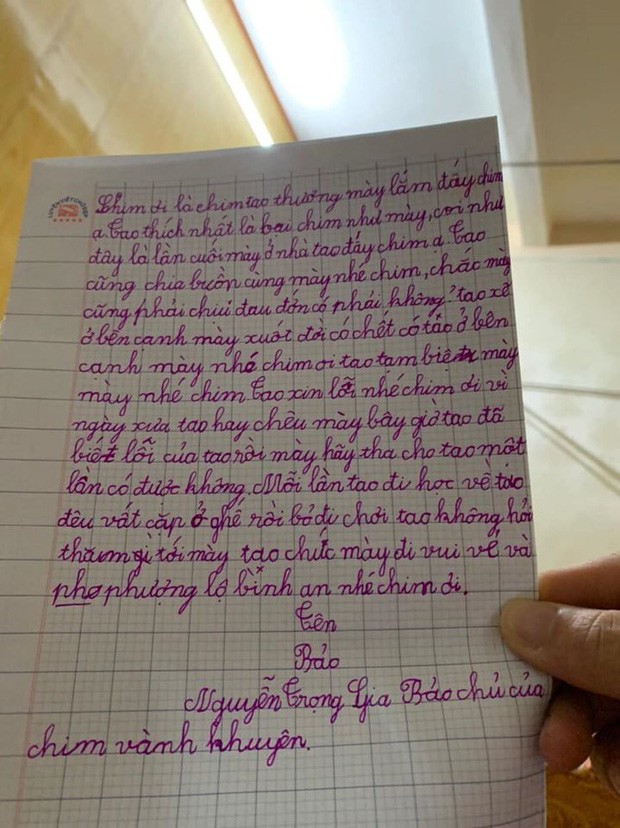 Chim ơi là chim tao thương mày lắm đấy chim
ạ. Tao thích nhất là bai chim như mày, coi như
đây là lần cuối mày ở nhà tao đấy chim ạ. Tao
cũng chia buồn cùng mày nhé chim, chắc mày
cũng phải chiu đau đớn có phải không? tao xẽ
ở bên cạnh mày xuốt đời có chết có tao ở bên
cạnh mày nhé chim ơi tao tạm biệt mày
mày nhé chim. Tao xin lỗi nhé chim ơi vì
ngày xưa tao hay chêu mày bây giờ tao đã
biết lỗi của tao rồi mày hãy tha cho tao một
lần có được không. Mỗi lần tao đi học về tao
đều vất cặp ở ghê rồi bỏ đi chơi tao không hỏi
thăm gì tới mày tao chức mày đi vui vẻ và
pho phượng lộ bình an nhé chim ơi.
Tên
Bảo
Nguyễn Trọng Gia Bảo chủ của
chim vành khuyên.